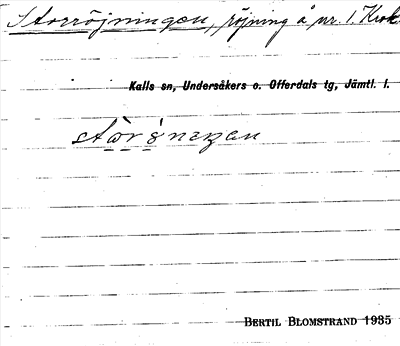 Storröjningen, röjning å nr. 1. Krok
Kalls sn, Undersåkers o. Offerdals tg, Jämtl. l.
BERTIL BLOMSTRAND 1935